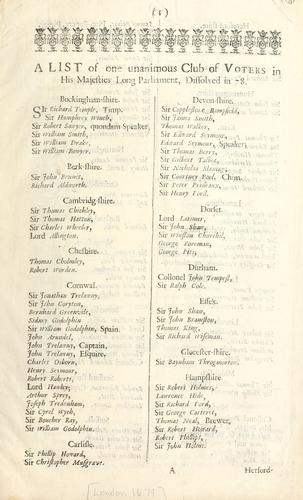 (1)
A LIST of one unanimous Club of VOTERS in
His Majesties Long Parliament, Dissolved in 78.
Buckingham-shire.
SIr Richard Temple, Timp.
Sir Humphery Winch,
Sir Robert Sawyer, quondam Speaker,
Sir William Smith,
Sir William Drake,
Sir William Bowyer.
Berk-shire.
Sir John Bennet,
Richard Aldworth.
Cambridg-shire.
Sir Thomas Chichley,
Sir Thomas Hatton,
Sir Charles Wheeler,
Lord Allington.
Cheshire.
Thomas Cholmley,
Robert Worden.
Cornwal.
Sir Jonathan Trelawny,
Sir John Coryton,
Bernhard Greenvile,
Sidney Godolphin
Sir William Godolphin, Spain.
John Arundel,
John Trelawny, Captain,
John Trelawny, Esquire.
Charles Osborn,
Henry Seymour,
Robert Roberts,
Lord Hawley,
Arthur Sprey,
Joseph Tredenham,
Sir Cyrel Wych,
Sir Boucher Ray,
Sir William Godolphin.
Carlisle.
Sir Phillip Howard,
Sir Christopher Musgrave.
Devon-shire.
Sir Copplestone Bampfield,
Sir James Smith,
Thomas Walker,
Sir Edward Seymour,
Edward Seymour, Speaker,
Sir Thomas Berry,
Sir Gilbert Talbot,
Sir Nicholas Slaning,
Sir Courtney Pool, Chim.
Sir Peter Prideaux,
Sir Henry Ford.
Dorset.
Lord Latimer,
Sir John Shaw,
Sir Winston Churchil,
George Boreman,
George Pitt,
Durham.
Collonel John Tempest,
Sir Ralph Cole.
Essex.
Sir John Shaw,
Sir John Bramston,
Thomas King,
Sir Richard Wiseman.
Glocester-shire.
Sir Baynham Throgmorton.
Hampshire
Sir Robert Holmes,
Lawrence Hide,
Sir Richard Ford,
Sir George Carteret,
Thomas Neal, Brewer,
Sir Robert Howard,
Robert Phillips,
Sir John Holms.
A
Herford-
[London. 1679]